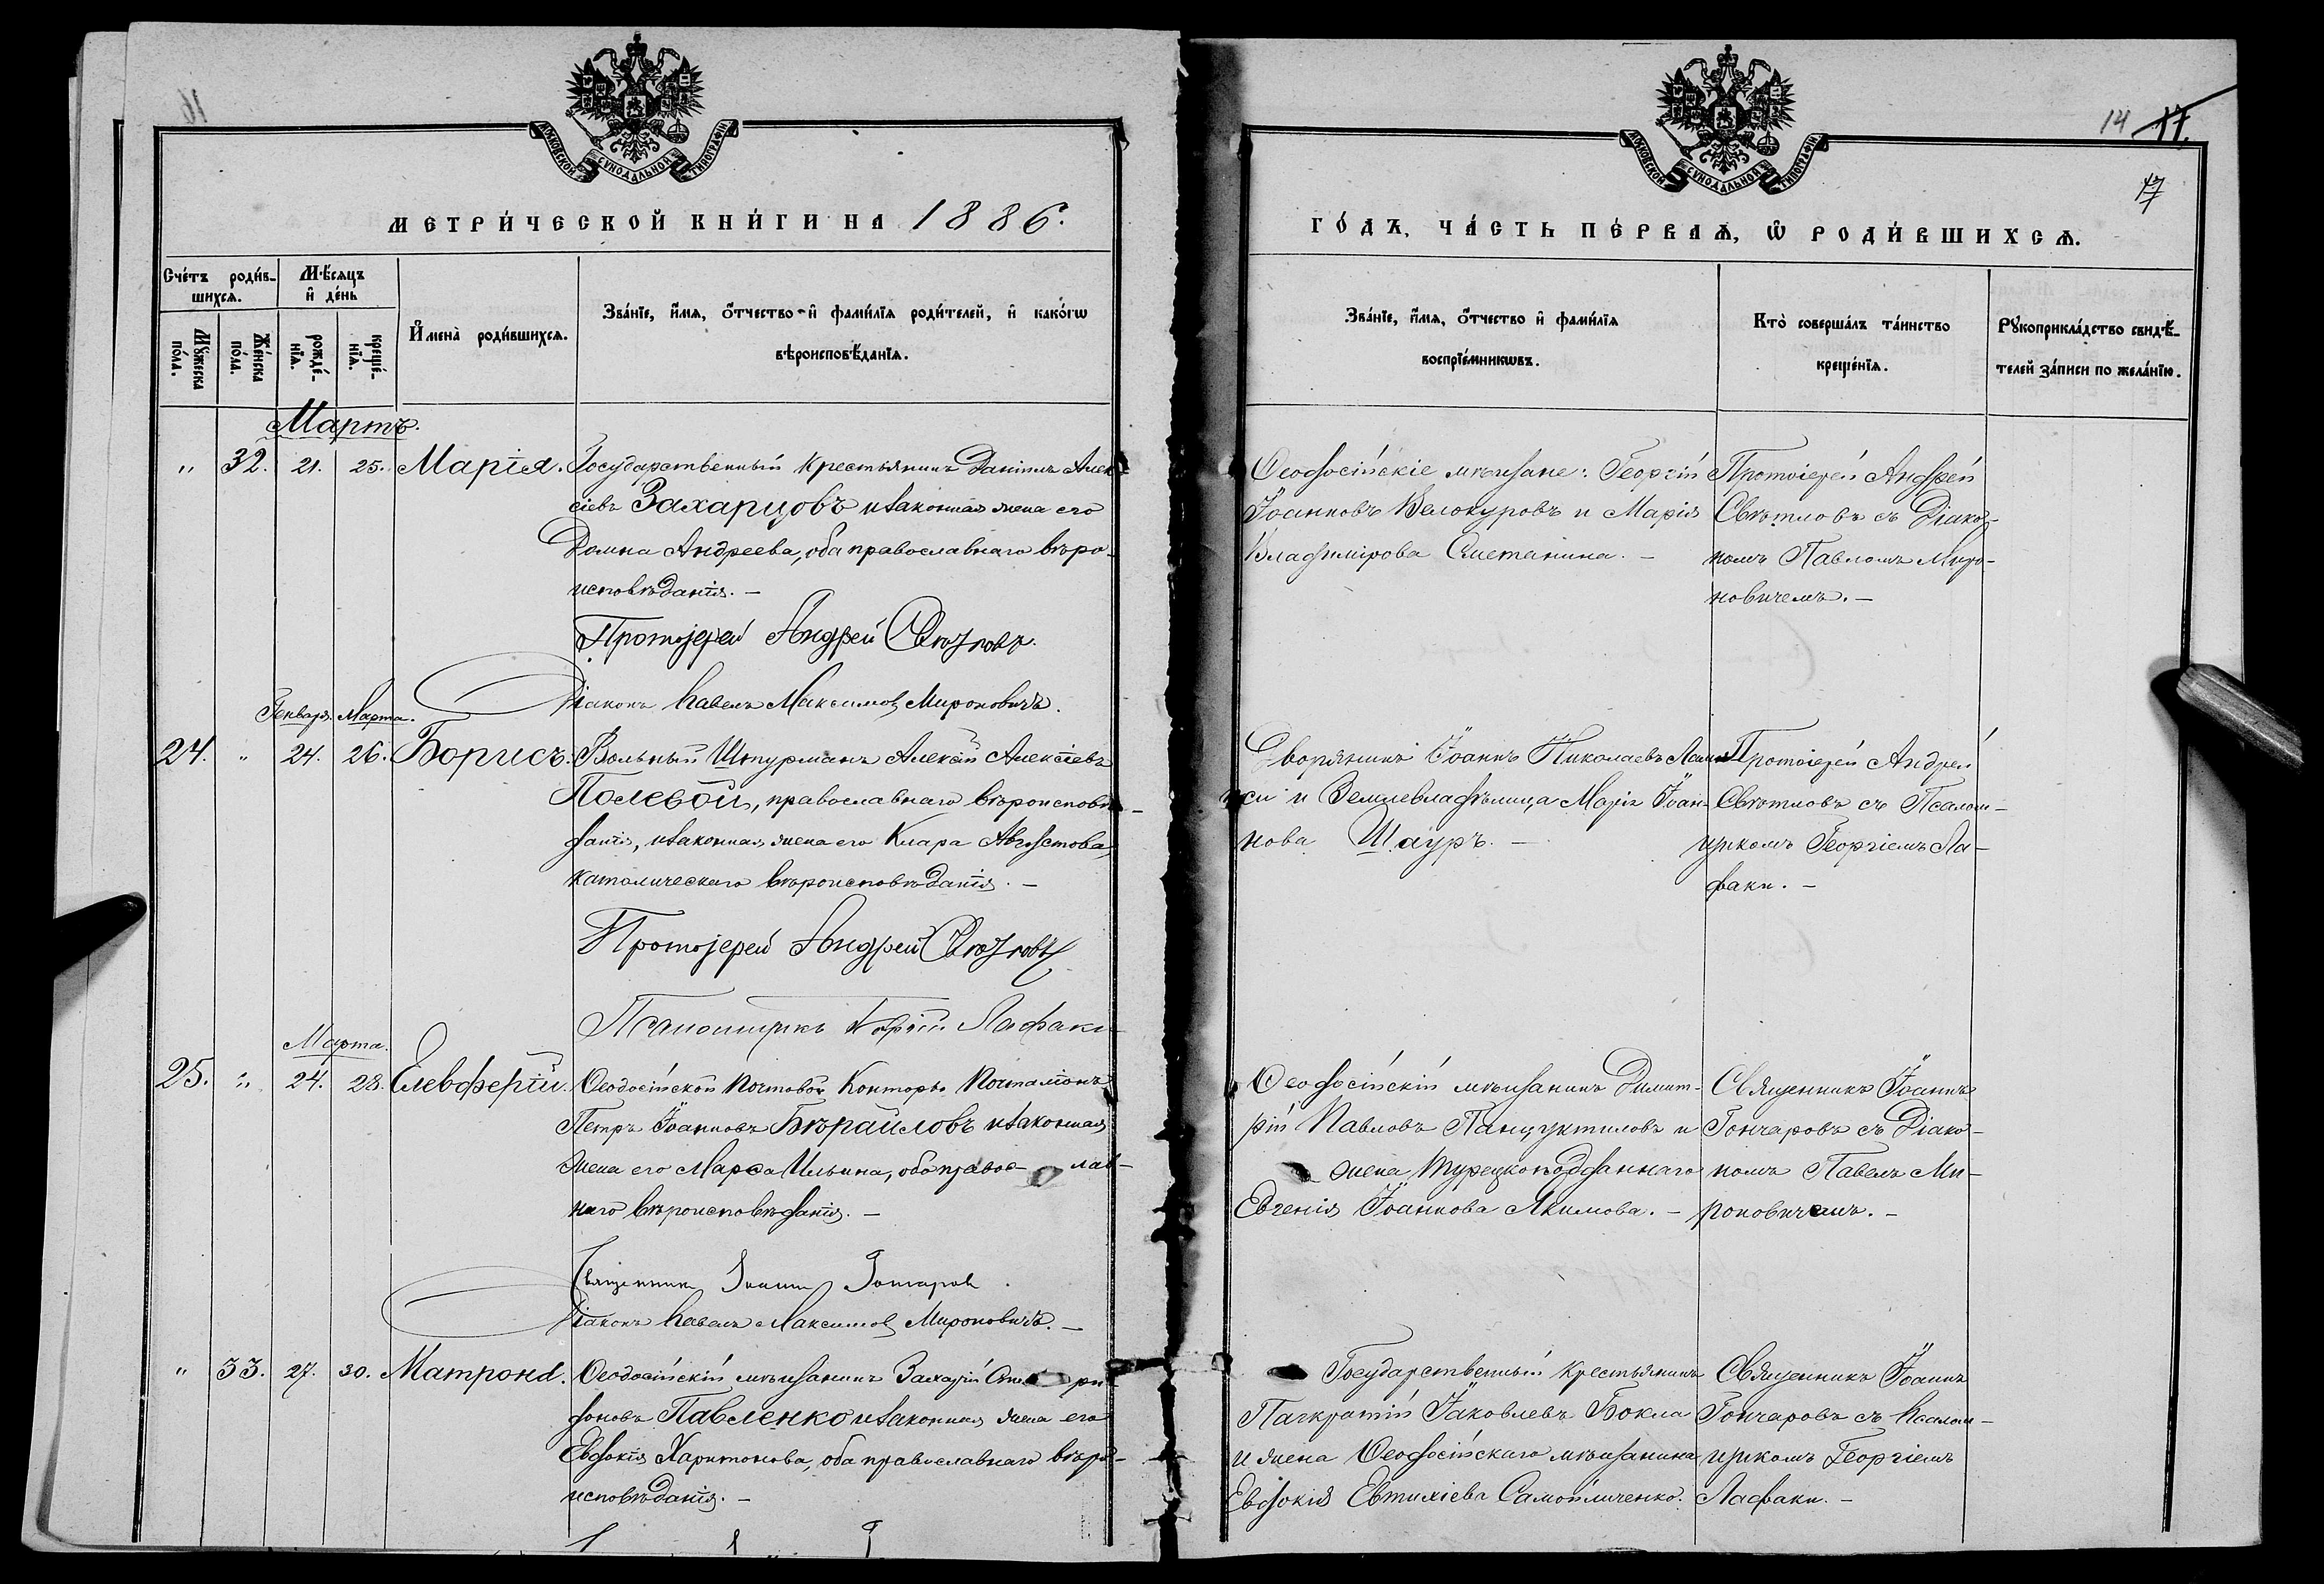 МОСКОВСКОЙ СѴНОДАЛЬНОЙ ТИПОГРАФІИ
МЕТРИ́ЧЕСКОЙ КНИ́ГИ НА 1886.
Сче́тъ роди́в-
шихсѧ.
Мѣ́сѧцъ
и҆ де́нь
И҆мена̀ роди́вшихсѧ.
Зва́нїе, и҆́мѧ, ѻ҆́тчество и҆ фами́лїѧ роди́телей, и҆ како́гѡ
вѣроисповѣ́данїѧ.
Мꙋ́жеска
по́ла.
Же́нска
по́ла.
рожде́-
нїѧ.
креще́-
нїѧ.
Мартъ.
„ 32. 21. 25. Марія. Государственный крестьянинъ Даніилъ Алек-
сіевъ Захарцовъ и законная жена его
Домна Андреева, оба православнаго вѣро-
исповѣданія. —
Протоіерей Андрей Свѣтловъ.
Діаконъ Павелъ Максимовъ Мироновичъ.
Генваря. Марта.
24. „ 24. 26. Борисъ. Вольный Штурманъ Алексій Алексіевъ
Полевой, православнаго вѣроисповѣ-
данія, и законная жена его Клара Августова,
католическаго вѣроисповѣданія. —
Протоіерей Андрей Свѣтловъ
Псаломщикъ Георгій Лафаки
Марта.
25. „ 24. 28. Елевферій. Ѳеодосійской Почтовой Конторы Почталіонъ
Петръ Іоанновъ Бѣраиловъ и законная
жена его Марѳа Ильина, оба православ-
наго вѣроисповѣданія. —
Священникъ Іоаннъ Гончаровъ
Діаконъ Павелъ Максимовъ Мироновичъ. —
„ 33. 27. 30. Матрона. Ѳеодосійскій мѣщанинъ Захарій
фоновъ Павленко и законная жена его
Евдокія Харитонова, оба православнаго вѣро-
исповѣданія. —
14 17.
17
МОСКОВСКОЙ СѴНОДАЛЬНОЙ ТИПОГРАФІИ
ГО́ДЪ, ЧА́СТЬ ПЕ́РВАѦ, Ѡ҆ РОДИ́ВШИХСѦ.
Зва́нїе, и҆́мѧ, ѻ҆́тчество и҆ фами́лїѧ
воспрїе́мникѡвъ.
Кто̀ соверша́лъ та́инство
креще́нїѧ.
Рꙋкоприкла́дство свидѣ́-
телей за́писи по жела́нїю.
Ѳеодосійскіе мѣщане: Георгій
Іоанновъ Белокуровъ и Марія
Владимірова Сметанина. —
Протоіерей Андрей
Свѣтловъ съ Діако-
номъ Павломъ Миро-
новичемъ. —
Дворянинъ Іоаннъ Николаевъ
и Землевладѣлица Марія Іоан-
нова Шауръ. —
Протоіерей Андрей
Свѣтловъ съ Псалом-
щикомъ Георгіемъ Ла-
факи. —
Ѳеодосійскій мѣщанинъ Димит-
рій Павловъ Панцуктиловъ и
жена Турецкоподданнаго
Евгенія Іоаннова Якимова. —
Священникъ Іоаннъ
Гончаровъ съ Діако-
номъ Павелъ Ми-
роновичемъ. —
Государственный крестьянинъ
Панкратій Іаковлевъ Бокла
и жена Ѳеодосійскаго мѣщанина
Евдокія Евтихіева Самойличенко.
Священникъ Іоаннъ
Гончаровъ съ Псалом-
щикомъ Георгіемъ
Лафаки. —